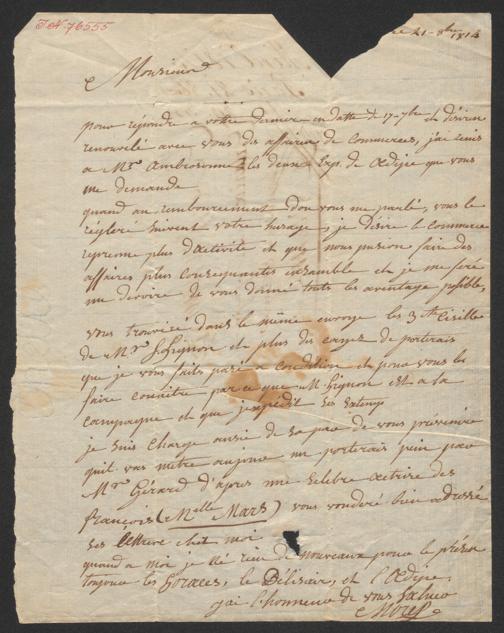 T.N. 76555
le 21 - 8bre 1814
Monsieur
pour répondre a vôtre derniere en datte de 17 - 7bre et désiran
renouvelé avec vous des affaires de commerces, j'ai remis
a Mr Ambrosonne les deux Exp. de Oedipe que vous
me demande
quand au rembourcement don vous me parlé, vous le
régleré suivent votre husage, je désire le commerce
reprenne plus d'activite et que nous puision faire des
affaires plus consequantes ensamble et je me feré
un devoire de vous donné touts les avantage posible,
vous trouveré dans le même envoye les 3
de Mr Lignon et plus des
que je vous faits pasé a condition et pour vous les
faire connaitre par ce que Mr Lignon est a la
campagne et que j'expédit ses
je suis chargé aussie de sa par de vous prévenire
quil vas metre aujour un portrais pein par
Mr Gérard d'apres une célebre actrice des
françois (Melle Mars) vous voudré bien adressé
ses lettre chez moi
quand a moi je né rien de nouveaux pour le présen
toujour les Horaces, le Bélisaire, et l'Oedipe,
j'ai l'honneur de vous saluer
Morel